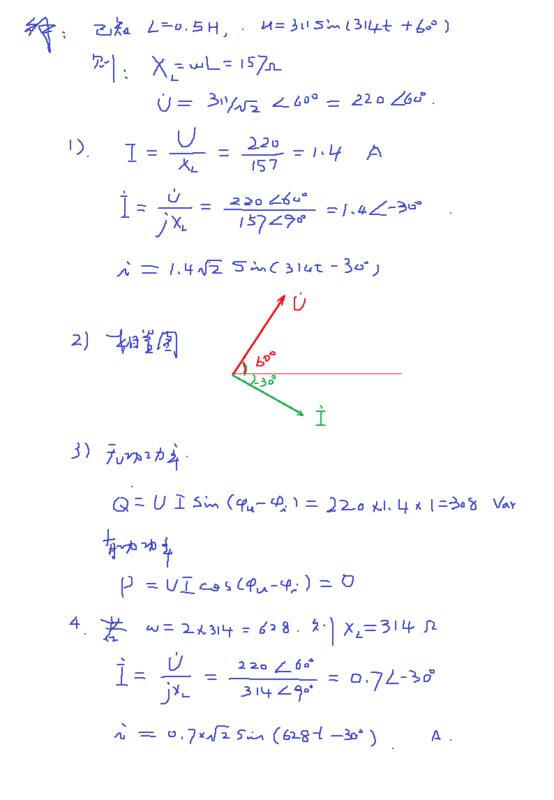 解: 已知 L=0.5H, . u=311Sin(314t+60°)
则: X_L=ωL=157Ω
U̇= 311/√2 ∠60°= 220∠60°.
1). I = U/X_L = 220/157 = 1.4 A
İ = U̇/jX_L = 220∠60°/157∠90° = 1.4∠-30° .
i = 1.4√2 Sin(314t-30°)
2) 相量图
U̇
60°
-30°
İ
3) 无功功率.
Q = U I Sin(φu-φi) = 220×1.4×1=308 Var
有功功率
P = UI cos(φu-φi) = 0
4. 若 ω=2×314=628. 则 X_L=314 Ω
İ = U̇/jX_L = 220∠60°/314∠90° = 0.7∠-30°
i = 0.7×√2 Sin(628t-30°) . A.